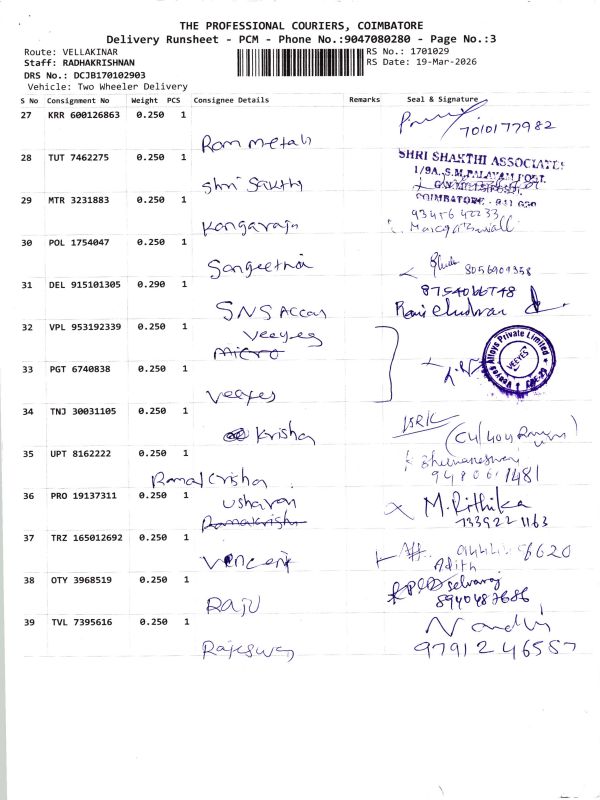 THE PROFESSIONAL COURIERS, COIMBATORE
Delivery Runsheet - PCM - Phone No.:9047080280 - Page No.:3
Route: VELLAKINAR
RS No.: 1701029
Staff: RADHAKRISHNAN
RS Date: 19-Mar-2026
DRS No.: DCJB170102903
Vehicle: Two Wheeler Delivery
S No Consignment No Weight PCS Consignee Details Remarks Seal & Signature
27 KRR 600126863 0.250 1
7010177982
Ram metals
28 TUT 7462275 0.250 1
SHRI SHAKTHI ASSOCIATES
1/9A, S.M.PALAYAM POST,
Shri Sakthi
29 MTR 3231883 0.250 1
COIMBATORE - 641 030
Kongaraja
30 POL 1754047 0.250 1
Sangeetha
8056901358
31 DEL 915101305 0.290 1
8754066748
SNS Accoy
32 VPL 953192339 0.250 1
Veeyes
micro
Veeyes Alloys Private Limited
VEEYES
33 PGT 6740838 0.250 1
Veeyes
34 TNJ 30031105 0.250 1
Krisha
35 UPT 8162222 0.250 1
Bhuvaneswari
Ramakrishna
36 PRO 19137311 0.250 1
M. Rithika
usharan
Ramakrishn
7339221163
37 TRZ 165012692 0.250 1
6620
Adith
Vencent
38 OTY 3968519 0.250 1
Selvaraj
8940487686
RAJU
39 TVL 7395616 0.250 1
Nandhj
9791246587
Rajeswary